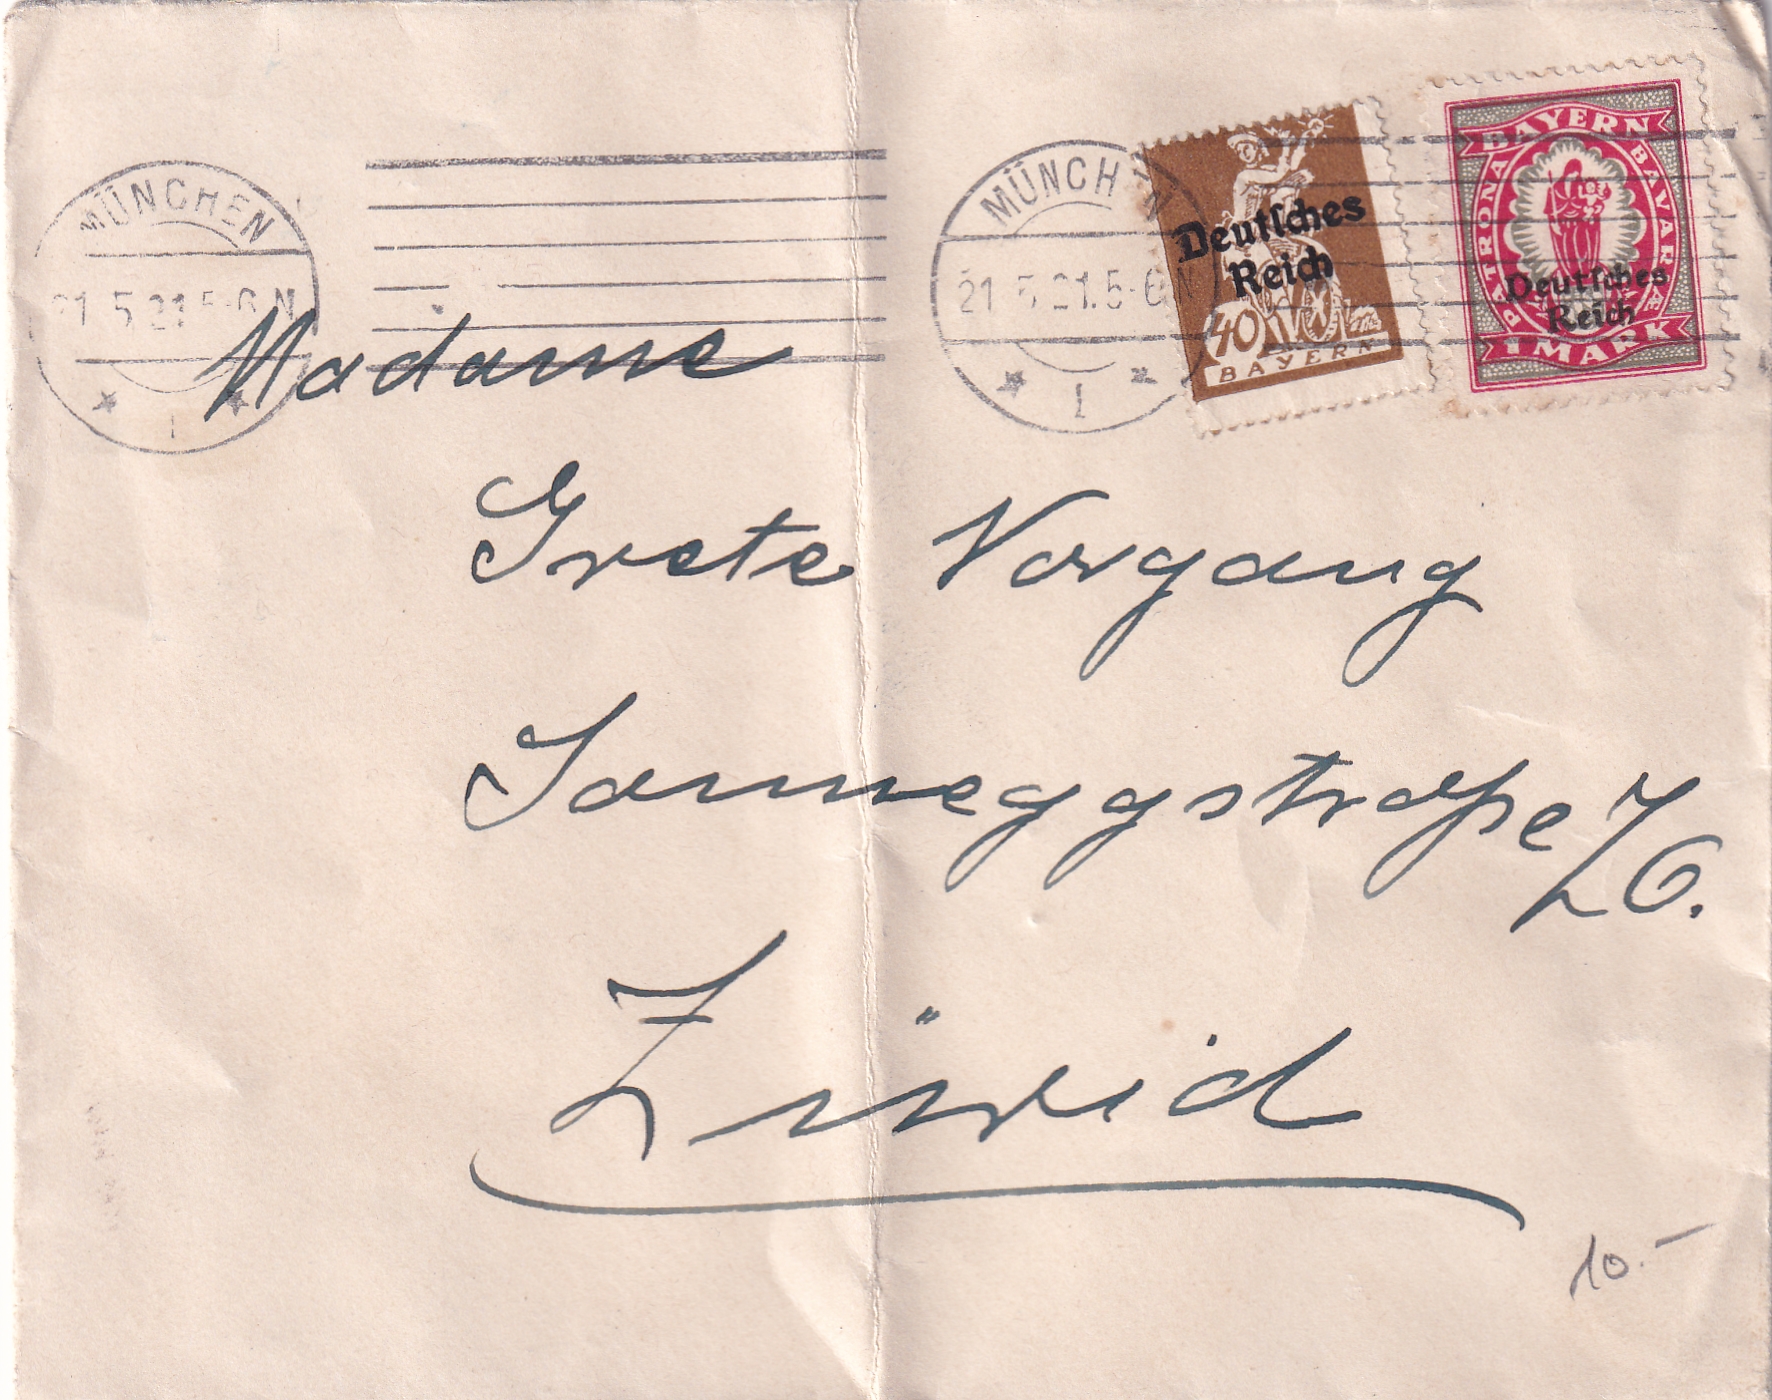 MÜNCHEN
21.5.21.5-6 N
1
MÜNCHEN
21.5.21.5-6 N
1
Deutsches
Reich
40
BAYERN
BAYERN
PATRONA BAVARIAE
Deutsches
Reich
1 MARK
Madame
Grete Vorgang
Sonneggstraße 76.
Zürich
10.–